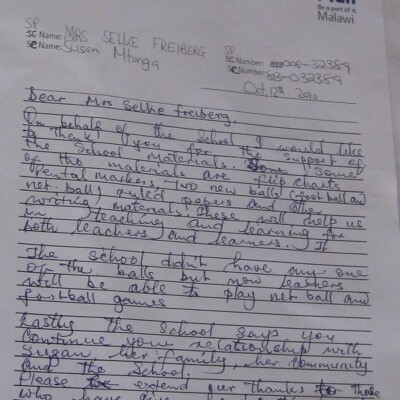 Be a part of it.
Malawi
SP
SC Name: MRS SELKE FREIBERG
SC Name: Susan Mtonga
SP
SC Number: 205-32389
SC Number: -032389
Oct, 12th 2010
Dear Mrs Selke Freiberg,
On behalf of the School I would like
to thank you for the support of
the School materials. Some
of the materials are flip charts
Pental markers, two new balls (foot ball and
net ball) ruled papers and other
writing materials. These will help us
in teaching and learning for
both teachers and learners. It
The school didn't have any one
of the balls but now learners
will be able to play net ball and
football games
Lastly the School says you
Continue your relationship with
Susan, her family, her community
and the School.
Please extend our thanks to those
who have